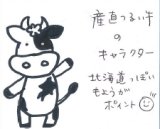 産直つるい牛
の
キャラクター
北海道っぽい
もようが
ポイント